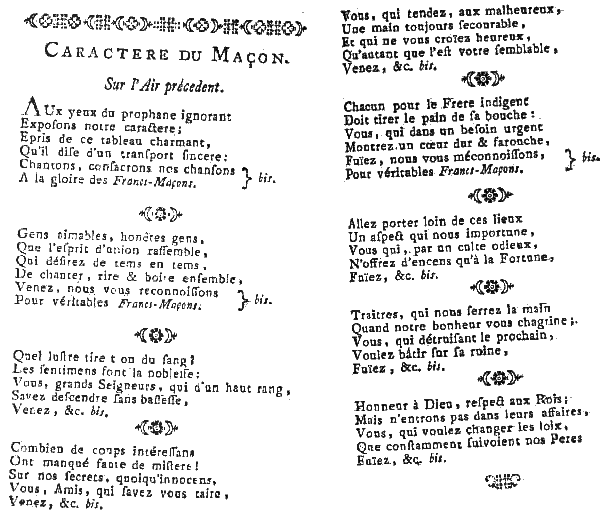 CARACTERE DU MAÇON.
Sur l'Air précedent.
AUx yeux du prophane ignorant
Expoſons notre caractere;
Epris de ce tableau charmant,
Qu'il diſe d'un tranſport ſincere:
Chantons, conſacrons nos chanſons
A la gloire des Francs-Maçons. } bis.
Gens aimables, honêtes gens,
Que l'eſprit d'union raſſemble,
Qui déſirez de tems en tems,
De chanter, rire & boire enſemble,
Venez, nous vous reconnoiſſons
Pour véritables Francs-Maçons. } bis.
Quel luſtre tire t on du ſang?
Les ſentimens font la nobleſſe:
Vous, grands Seigneurs, qui d'un haut rang,
Savez deſcendre ſans baſſeſſe,
Venez, &c. bis.
Combien de coups intéreſſans
Ont manqué faute de miſtere!
Sur nos ſecrets, quoiqu'innocens,
Vous, Amis, qui ſavez vous taire,
Venez, &c. bis.
Vous, qui tendez, aux malheureux,
Une main toujours ſecourable,
Et qui ne vous croïez heureux,
Qu'autant que l'eſt votre ſemblable,
Venez, &c. bis.
Chacun pour le Frere indigent
Doit tirer le pain de ſa bouche:
Vous, qui dans un beſoin urgent
Montrez un cœur dur & farouche,
Fuïez, nous vous méconnoiſſons,
Pour véritables Francs-Maçons. } bis.
Allez porter loin de ces lieux
Un aſpect qui nous importune,
Vous qui, par un culte odieux,
N'offrez d'encens qu'à la Fortune,
Fuïez, &c. bis.
Traitres, qui nous ſerrez la main
Quand notre bonheur vous chagrine;
Vous, qui détruiſant le prochain,
Voulez bâtir ſur ſa ruine,
Fuïez, &c. bis.
Honneur à Dieu, reſpect aux Rois;
Mais n'entrons pas dans leurs affaires,
Vous, qui voulez changer les loix,
Que conſtamment ſuivoient nos Peres
Fuïez, &c. bis.